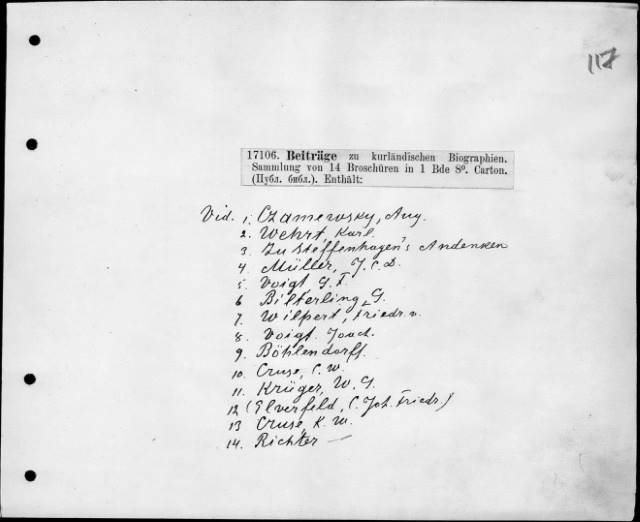 117
17106. Beiträge zu kurländischen Biographien.
Sammlung von 14 Broschüren in 1 Bde 8°. Carton.
(Публ. библ.). Enthält:
Vid. 1. Czamewsky, Aug.
2. Wehrt, Karl.
3. Zu Steffenhagen's Andenken
4. Müller, J. C. D.
5. Voigt, G. F.
6. Bitterling, G.
7. Wilpert, Friedr. v.
8. Voigt. Joach.
9. Böhlendorff.
10. Cruse, C. W.
11. Krüger, W. G.
12 (Elverfeld, C. Joh. Friedr.)
13 Cruse, K. W.
14. Richter —